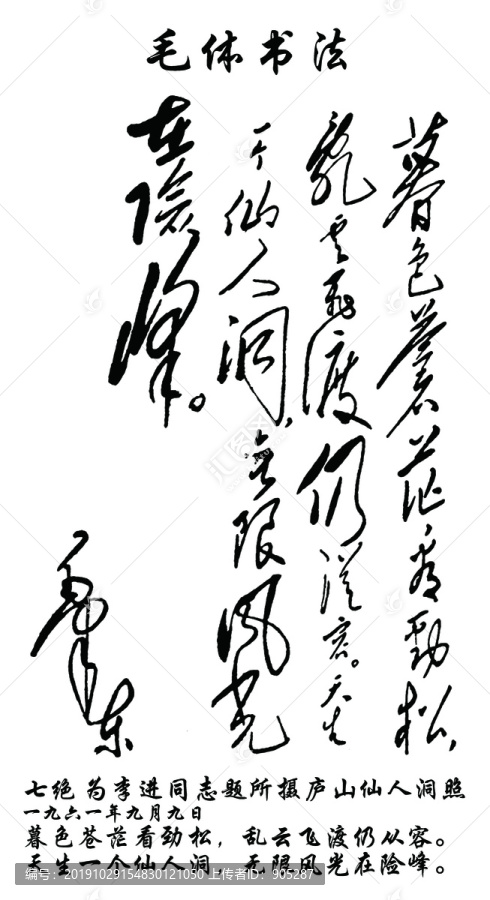 毛体书法
暮色蒼茫，看勁松，
亂云飛渡仍從容。天生
一个仙人洞，無限風光
在險峰。
毛澤東
七绝 为李进同志题所摄庐山仙人洞照
一九六一年九月九日
暮色苍茫看劲松，乱云飞渡仍从容。
天生一个仙人洞，无限风光在险峰。
编号：20191029154830121050 上传者ID：905287